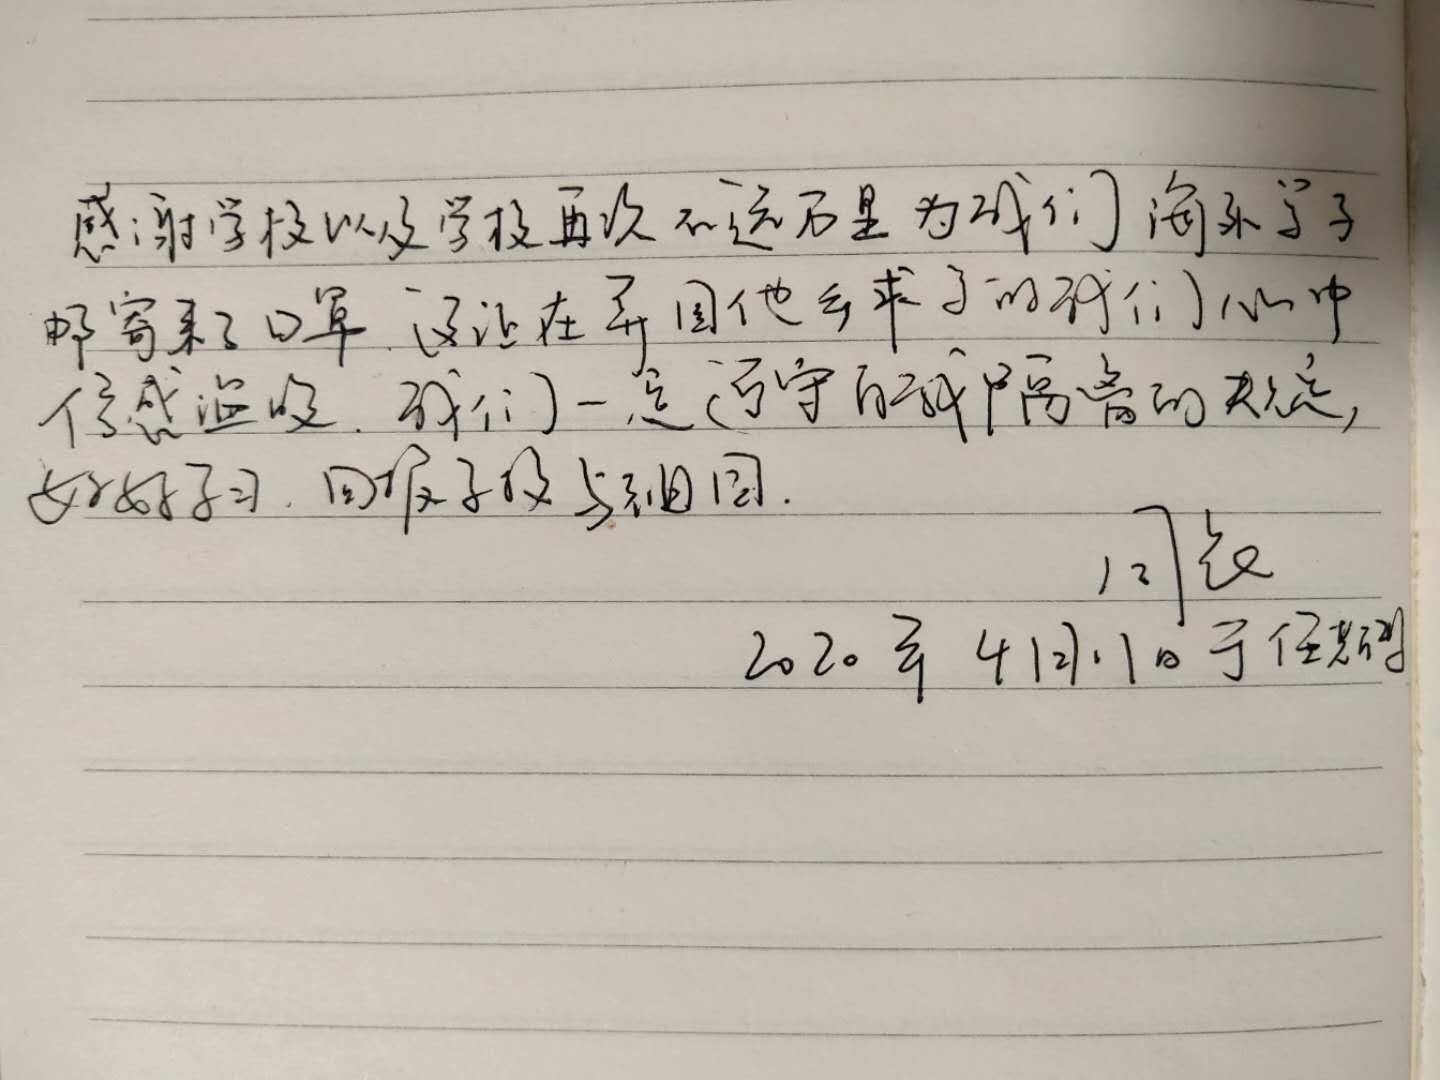 感谢学校以及学校再次不远万里为我们海外学子
邮寄来了口罩.这让在异国他乡求学的我们心中
倍感温暖.我们一定遵守自我隔离的规定,
好好学习.回报学校与祖国.
2020年4月1日于